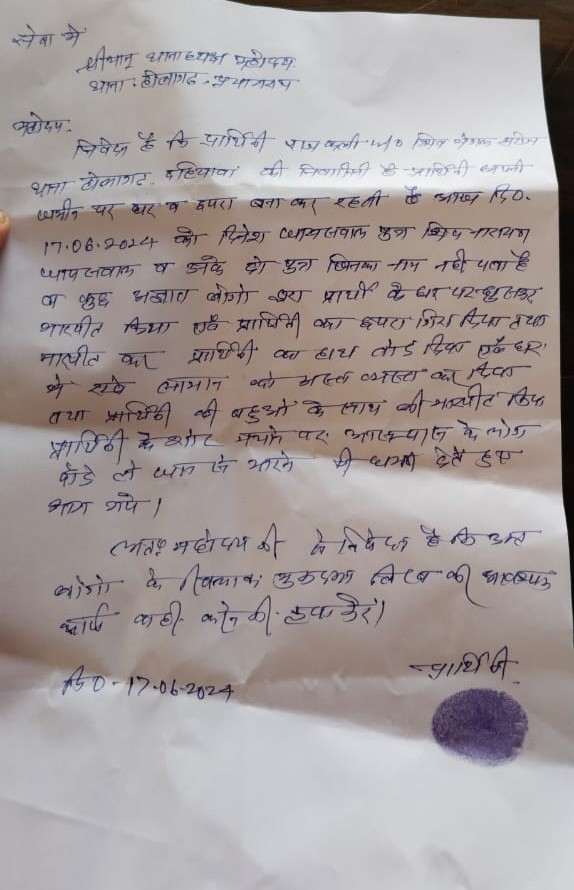 सेवा में
श्रीमान् थानाध्यक्ष महोदय
थाना - होलागढ़ - प्रयागराज
महोदय,
निवेदन है कि प्रार्थिनी राज कली w/o शिव सेवक सरोज
थाना होलागढ़ दहियावां की निवासिनी है प्रार्थिनी अपनी
जमीन पर घर व छपरा बना कर रहती है आज दि०.
17.06.2024 को दिनेश जायसवाल पुत्र शिव नारायण
जायसवाल व उनके दो पुत्र जिनका नाम नहीं पता है
व कुछ अज्ञात लोगो द्वारा प्रार्थी के घर पर घुसकर
मारपीट किया एवं प्रार्थिनी का छपरा गिरा दिया तथा
मारपीट कर प्रार्थिनी का हाथ तोड़ दिया एवं घर
में रखे सामान को अस्त व्यस्त कर दिया
तथा प्रार्थिनी की बहुओं के साथ भी मारपीट किया
प्रार्थिनी के शोर मचाने पर आसपास के लोग
दौडे तो जान से मारने की धमकी देते हुए
भाग गये।
अतः महोदय जी से निवेदन है कि उक्त
लोगो के खिलाफ मुकदमा लिख की आवश्यक
कार्य वाही करने की कृपा करें।
दि० - 17.06.2024
प्रार्थिनी